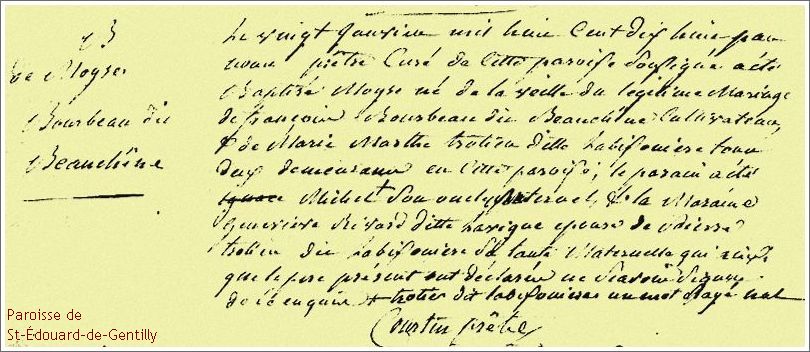 B
de Moyse
Bourbeau dit
Beauchêne
Le vingt Janvier mil huit Cent dix huit par
nous prêtre Curé de Cette paroisse Soussigné a été
Baptisé Moyse né de la veille du légitime Mariage
de françois Bourbeau dit Beauchêne Cultivateur,
& de Marie Marthe trotier ditte Labissoniere tous
deux demeurans en Cette paroisse; le parain a été
Michel Son oncle paternel, & la Maraine
Genevieve Rivard ditte Lavigne epouse de pierre
trotier dit Labissoniere Sa tante Maternelle qui ainsi
que le pere présent ont déclarés ne Scavoir Signer
de ce enquis + trotier dit Labissoniere un mot rayé nul
Courtin prêtre
Paroisse de
St-Édouard-de-Gentilly